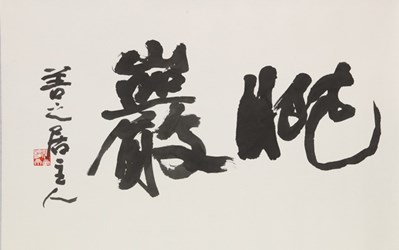 眺巖
善之居主人